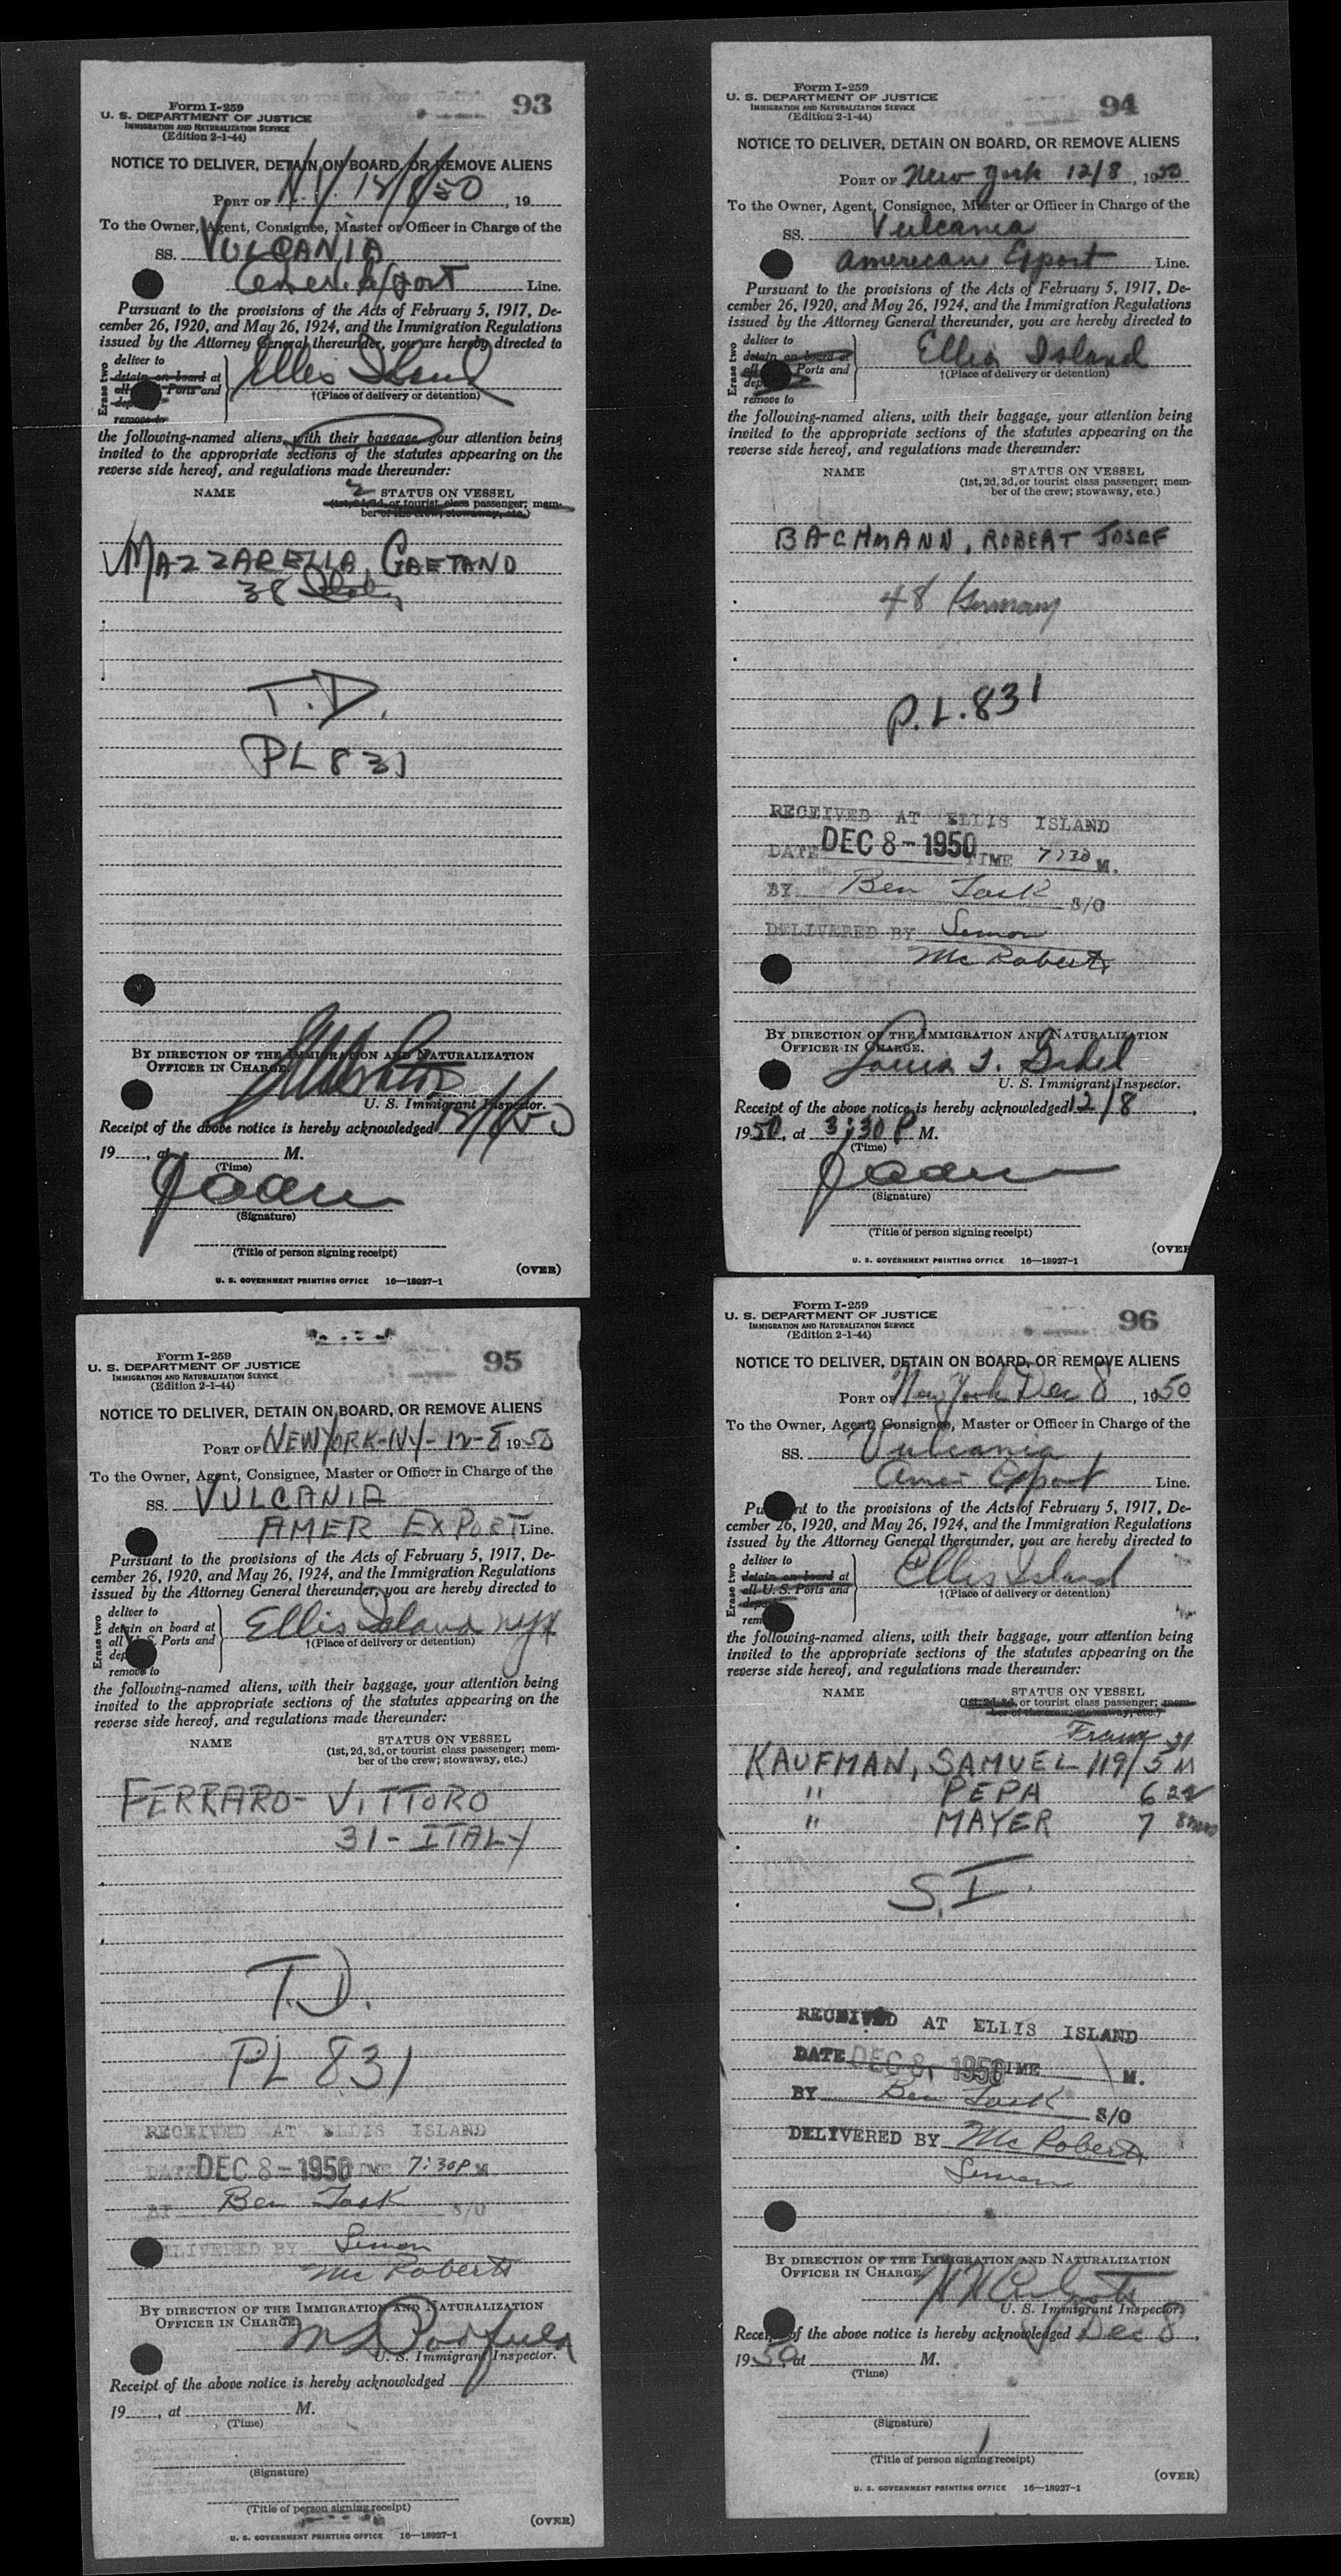 93
Form I-259
U. S. DEPARTMENT OF JUSTICE
IMMIGRATION AND NATURALIZATION SERVICE
(Edition 2-1-44)
NOTICE TO DELIVER, DETAIN ON BOARD, OR REMOVE ALIENS
PORT OF N.Y. 12/8/50, 19
To the Owner, Agent, Consignee, Master or Officer in Charge of the
SS. VULCANIA
Export Line.
Pursuant to the provisions of the Acts of February 5, 1917, De-
cember 26, 1920, and May 26, 1924, and the Immigration Regulations
issued by the Attorney General thereunder, you are hereby directed to
Erase two
deliver to
detain on board at
all Ports and
remove to
Ellis Island
†(Place of delivery or detention)
the following-named aliens, with their baggage, your attention being
invited to the appropriate sections of the statutes appearing on the
reverse side hereof, and regulations made thereunder:
NAME STATUS ON VESSEL
(1st, 2d, 3d, or tourist class passenger; mem-
ber of the crew; stowaway, etc.)
MAZZARELLA, GAETANO
38 Italy
T.D.
PL 831
BY DIRECTION OF THE IMMIGRATION AND NATURALIZATION
OFFICER IN CHARGE.
U. S. Immigrant Inspector.
Receipt of the above notice is hereby acknowledged 12/8/50
19, at M.
(Time)
(Signature)
(Title of person signing receipt)
(OVER)
U. S. GOVERNMENT PRINTING OFFICE 16—18927-1
94
Form I-259
U. S. DEPARTMENT OF JUSTICE
IMMIGRATION AND NATURALIZATION SERVICE
(Edition 2-1-44)
NOTICE TO DELIVER, DETAIN ON BOARD, OR REMOVE ALIENS
PORT OF New York 12/8, 1950
To the Owner, Agent, Consignee, Master or Officer in Charge of the
SS. Vulcania
American Export Line.
Pursuant to the provisions of the Acts of February 5, 1917, De-
cember 26, 1920, and May 26, 1924, and the Immigration Regulations
issued by the Attorney General thereunder, you are hereby directed to
Erase two
deliver to
detain on board at
all Ports and
remove to
Ellis Island
†(Place of delivery or detention)
the following-named aliens, with their baggage, your attention being
invited to the appropriate sections of the statutes appearing on the
reverse side hereof, and regulations made thereunder:
NAME STATUS ON VESSEL
(1st, 2d, 3d, or tourist class passenger; mem-
ber of the crew; stowaway, etc.)
BACHMANN, ROBERT JOSEF
48 Germany
P.L.831
RECEIVED AT ELLIS ISLAND
DATE DEC 8 - 1950 TIME 7:30 M.
BY Ben Task S/O
DELIVERED BY Simon
McRoberts
BY DIRECTION OF THE IMMIGRATION AND NATURALIZATION
OFFICER IN CHARGE.
Louis J.
U. S. Immigrant Inspector.
Receipt of the above notice is hereby acknowledged 12/8,
1950, at 3:30 P M.
(Time)
(Signature)
(Title of person signing receipt)
(OVER
U. S. GOVERNMENT PRINTING OFFICE 16—18927-1
95
Form I-259
U. S. DEPARTMENT OF JUSTICE
IMMIGRATION AND NATURALIZATION SERVICE
(Edition 2-1-44)
NOTICE TO DELIVER, DETAIN ON BOARD, OR REMOVE ALIENS
PORT OF NEWYORK-NY-12-8 1950
To the Owner, Agent, Consignee, Master or Officer in Charge of the
SS. VULCANIA
AMER EXPORT Line.
Pursuant to the provisions of the Acts of February 5, 1917, De-
cember 26, 1920, and May 26, 1924, and the Immigration Regulations
issued by the Attorney General thereunder, you are hereby directed to
Erase two
deliver to
detain on board at
all S. Ports and
remove to
Ellis Island
†(Place of delivery or detention)
the following-named aliens, with their baggage, your attention being
invited to the appropriate sections of the statutes appearing on the
reverse side hereof, and regulations made thereunder:
NAME STATUS ON VESSEL
(1st, 2d, 3d, or tourist class passenger; mem-
ber of the crew; stowaway, etc.)
FERRARO- VITTORO
31- ITALY
T.D.
PL 831
RECEIVED AT ELLIS ISLAND
DATE DEC 8 - 1950 TIME 7:30P M
BY Ben Task S/O
DELIVERED BY Simon
McRoberts
BY DIRECTION OF THE IMMIGRATION AND NATURALIZATION
OFFICER IN CHARGE.
U. S. Immigrant Inspector.
Receipt of the above notice is hereby acknowledged
19, at M.
(Time)
(Signature)
(Title of person signing receipt)
(OVER)
U. S. GOVERNMENT PRINTING OFFICE 16—18927-1
96
Form I-259
U. S. DEPARTMENT OF JUSTICE
IMMIGRATION AND NATURALIZATION SERVICE
(Edition 2-1-44)
NOTICE TO DELIVER, DETAIN ON BOARD, OR REMOVE ALIENS
PORT OF New York Dec 8, 1950
To the Owner, Agent, Consignee, Master or Officer in Charge of the
SS. Vulcania
Amer Export Line.
Pursuant to the provisions of the Acts of February 5, 1917, De-
cember 26, 1920, and May 26, 1924, and the Immigration Regulations
issued by the Attorney General thereunder, you are hereby directed to
Erase two
deliver to
detain on board at
all U. S. Ports and
Ellis Island
†(Place of delivery or detention)
the following-named aliens, with their baggage, your attention being
invited to the appropriate sections of the statutes appearing on the
reverse side hereof, and regulations made thereunder:
NAME STATUS ON VESSEL
(1st, 2d, 3d, or tourist class passenger; mem-
ber of the crew; stowaway, etc.)
KAUFMAN, SAMUEL 119/5 31
" PEPA 6 22
" MAYER 7
S.I.
RECEIVED AT ELLIS ISLAND
DATE DEC 8, 1950 TIME M.
BY Ben Task S/O
DELIVERED BY McRoberts
Simon
BY DIRECTION OF THE IMMIGRATION AND NATURALIZATION
OFFICER IN CHARGE.
U. S. Immigrant Inspector.
Receipt of the above notice is hereby acknowledged Dec 8,
1950, at M.
(Time)
(Signature)
(Title of person signing receipt)
(OVER)
U. S. GOVERNMENT PRINTING OFFICE 16—18927-1